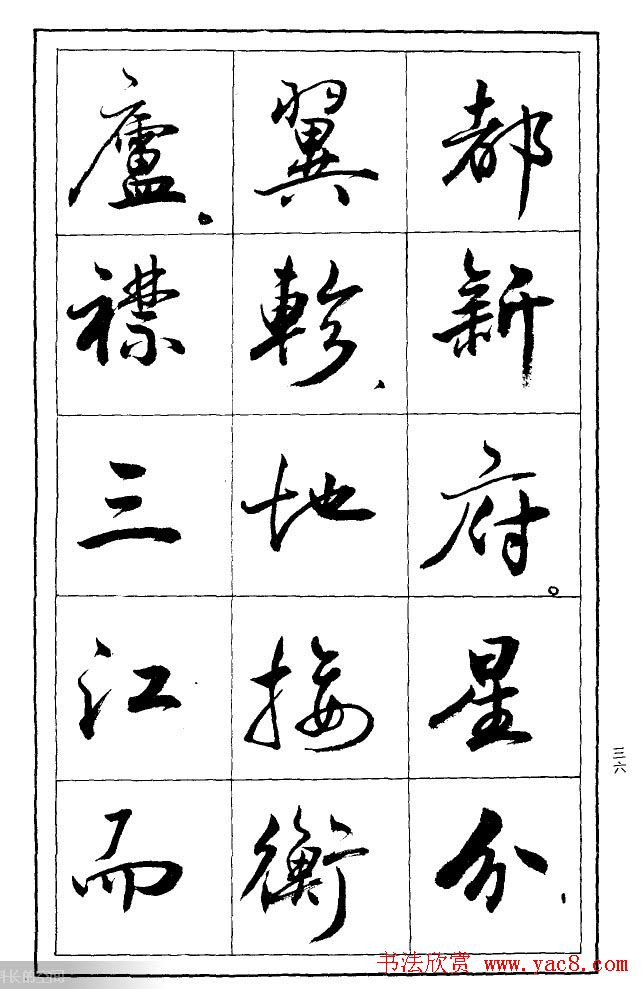 都新府。星分、
翼軫、地接衡
廬。襟三江而
三六
书法欣赏 www.yac8.com
科长的空间